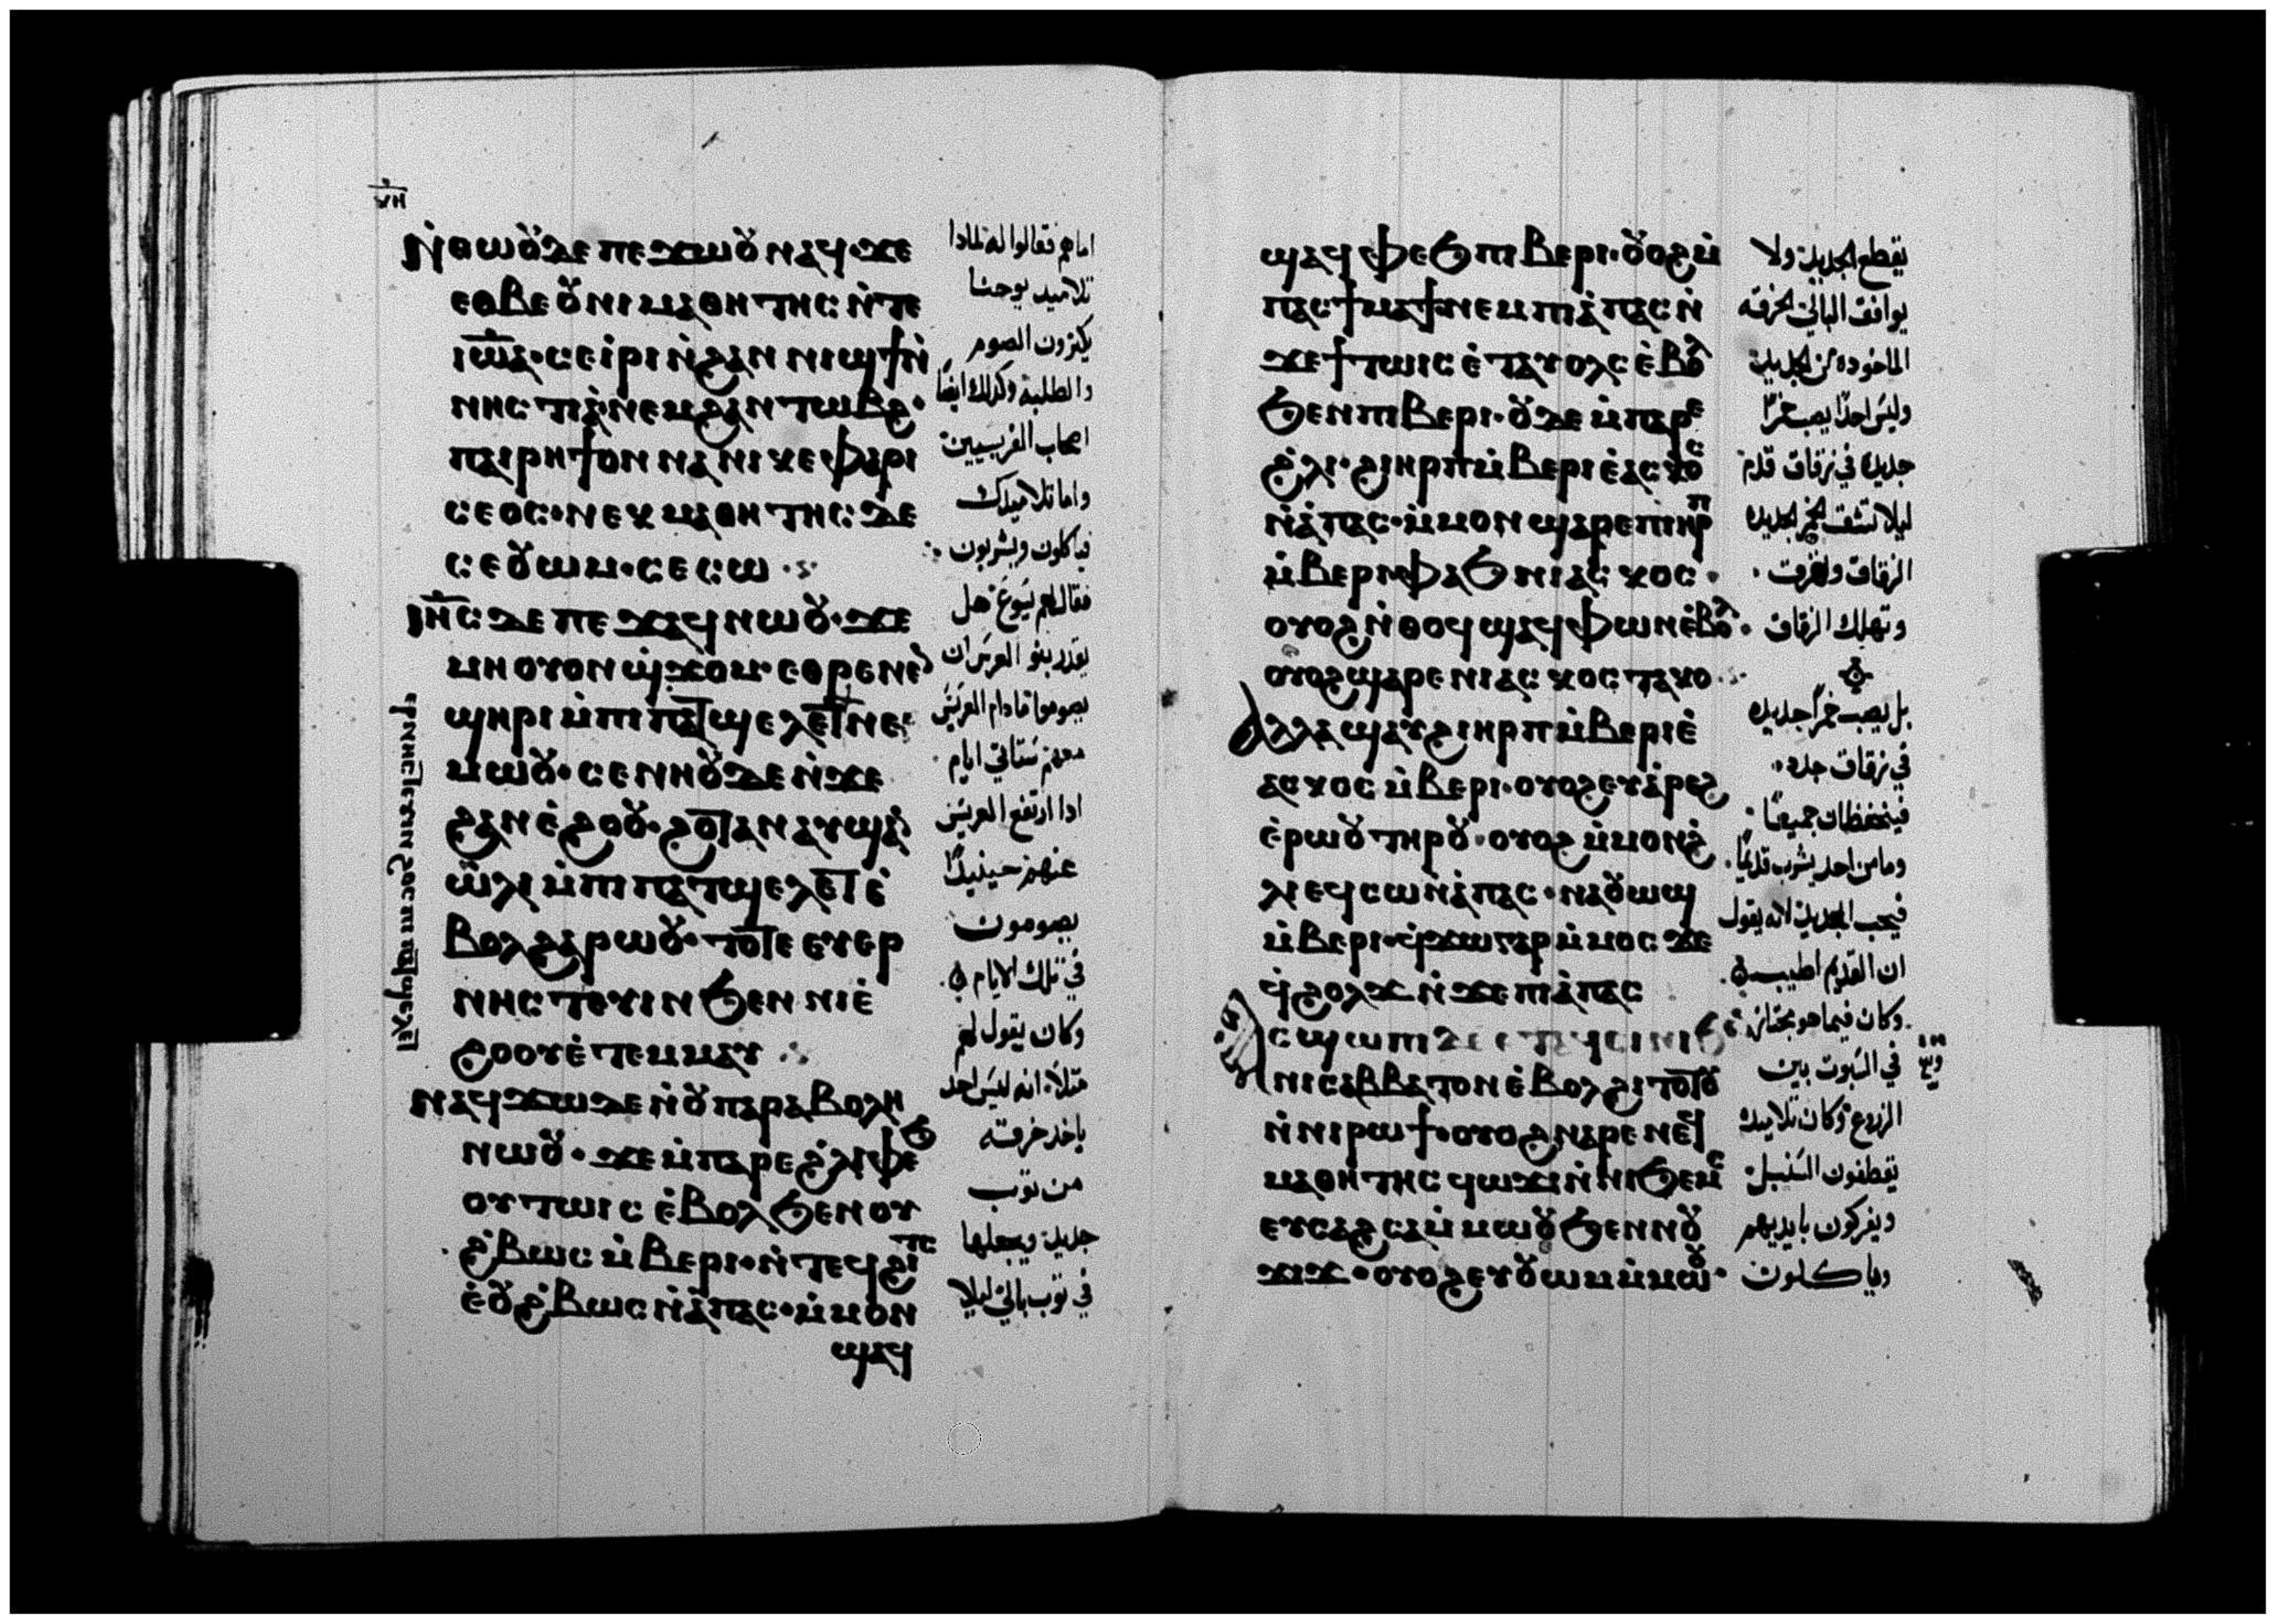 ⲛⲏ
ⲛ̇ⲑⲱⲟⲩⲇⲉ ⲡⲉϫⲱⲟⲩ ⲛⲁϥ·ϫⲉ
ⲉⲑⲃⲉⲟⲩ ⲛⲓⲙⲁⲑⲏⲧⲏⲥ ⲛ̇ⲧⲉ
ⲓⲱ̅ⲁ̅·ⲥⲉⲓ̇ⲣⲓ ⲛ̇ϩⲁⲛ ⲛⲓϣϯ ⲛ̇
ⲛⲏⲥⲧⲓⲁ̇ ⲛⲉⲙ ϩⲁⲛ ⲧⲱⲃϩ·
ⲡⲁⲓⲣⲏϯ ⲟⲛ ⲛⲁ ⲛⲓⲕⲉ ⲫⲁⲣⲓ
ⲥⲉⲟⲥ·ⲛⲉⲕ ⲙⲁⲑⲏⲧⲏⲥ ⲇⲉ
ⲥⲉⲟⲩⲱⲙ·ⲥⲉⲥⲱ·
ⲓⲏ̅ⲥ ⲇⲉ ⲡⲉϫⲁϥ ⲛⲱⲟⲩ·ϫⲉ
ⲙⲏ ⲟⲩⲟⲛ ϣ̇ϫⲟⲙ·ⲉⲑⲣⲉⲛⲉⲛ
ϣⲏⲣⲓ ⲙ̇ⲡⲓ ⲡⲁⲧϣⲉⲗⲉⲧ ⲛⲉ
ⲙⲱⲟⲩ·ⲥⲉⲛⲛⲏⲟⲩ ⲇⲉ ⲛ̇ϫⲉ
ϩⲁⲛ ⲉ̇ϩⲟⲟⲩ·ϩⲟⲧⲁⲛ ⲁⲩϣⲁⲛ
ⲱ̇ⲗⲓ ⲙ̇ⲡⲓ ⲡⲁⲧϣⲉⲗⲉⲧ ⲉ̇
ⲃⲟⲗ ϩⲁⲣⲱⲟⲩ·ⲧⲟⲧⲉ ⲉⲩⲉⲣ
ⲛⲏⲥⲧⲉⲩⲓⲛ ϧⲉⲛ ⲛⲓⲉ̇
ϩⲟⲟⲩ ⲉ̇ⲧⲉⲙⲙⲁⲩ
ⲛⲁϥϫⲱ ⲇⲉ ⲛ̇ⲟⲩⲡⲁⲣⲁⲃⲟⲗⲏ
ⲛⲱⲟⲩ·ϫⲉ ⲙ̇ⲡⲁⲣⲉ ϩ̇ⲗⲓ ⲫⲉϧ
ⲟⲩⲧⲱⲓⲥ ⲉ̇ⲃⲟⲗ ϧⲉⲛ ⲟⲩ
ϩ̇ⲃⲱⲥ ⲙ̇ⲃⲉⲣⲓ·ⲛ̇ⲧⲉϥϩⲓⲧⲥ
ⲉ̇ⲟⲩϩ̇ⲃⲱⲥ ⲛ̇ⲁ̇ⲡⲁⲥ·ⲙ̇ⲙⲟⲛ
ϣⲁϥ
امامهم فقالوا له لمادا
تلاميد يوحنا
يكثرون الصوم
والطلبة وكدلك ايضا
اصحاب الفريسيين
واما تلاميدك
فياكلون ويشربون
فقال لهم يسوع هل
يقدر بنو العرس ان
يصوموا ما دام العريس
معهم ستاتي ايام
ادا ارتفع العريس
عنهم حينيدا
يصومون
في تلك الايام
وكان يقول لهم
مثلا انه ليس احد
ياخد خرقه
من توب
جديد ويجعلها
في توب بالي ليلا
ϣⲁϥⲫⲉϧ ⲡⲓⲃⲉⲣⲓ·ⲟⲩⲟϩ ⲙ̇
ⲡⲁⲥϯⲙⲁϯ ⲛⲉⲙ ⲡⲓⲁ̇ⲡⲁⲥ ⲛ̇
ϫⲉ ϯⲧⲱⲓⲥ ⲉ̇ⲧⲁⲩⲟⲗⲥ ⲉ̇ⲃⲟⲗ
ϧⲉⲛ ⲡⲓⲃⲉⲣⲓ·ⲟⲩⲇⲉ ⲙ̇ⲡⲁⲣⲉ
ϩ̇ⲗⲓ·ϩⲓⲏⲣⲡ ⲙ̇ⲃⲉⲣⲓ ⲉ̇ⲁⲥⲕⲟⲥ
ⲛ̇ⲁ̇ⲡⲁⲥ·ⲙ̇ⲙⲟⲛ ϣⲁⲣⲉ ⲡⲓⲏⲣⲡ
ⲙ̇ⲃⲉⲣⲓ ⲫⲁϧ ⲛⲓⲁⲥⲕⲟⲥ·
ⲟⲩⲟϩ ⲛ̇ⲑⲟϥ ϣⲁϥⲫⲱⲛ ⲉ̇ⲃⲟⲗ·
ⲟⲩⲟϩ ϣⲁⲣⲉ ⲛⲓⲁⲥⲕⲟⲥ ⲧⲁⲕⲟ·
ⲁⲗⲗⲁ ϣⲁⲩϩⲓⲏⲣⲡ ⲙ̇ⲃⲉⲣⲓ ⲉ̇
ⲁⲥⲕⲟⲥ ⲙ̇ⲃⲉⲣⲓ·ⲟⲩⲟϩ ⲉⲩⲁ̇ⲣⲉϩ
ⲉ̇ⲣⲱⲟⲩ ⲧⲏⲣⲟⲩ·ⲟⲩⲟϩ ⲙ̇ⲙⲟⲛ ϩ̇
ⲗⲓ ⲉϥⲥⲱ ⲛ̇ⲁ̇ⲡⲁⲥ·ⲛⲁⲟⲩⲱϣ
ⲙ̇ⲃⲉⲣⲓ·ϥ̇ϫⲱ ⲅⲁⲣ ⲙ̇ⲙⲟⲥ ϫⲉ
ϥ̇ϩⲟⲗϫ ⲛ̇ϫⲉ ⲡⲓⲁ̇ⲡⲁⲥ
ⲁⲥϣⲱⲡⲓ ⲇⲉ ⲉⲧⲁϥⲥⲓⲛⲓ ϧⲉⲛ
ⲛⲓⲥⲁⲃⲃⲁⲧⲟⲛ ⲉ̇ⲃⲟⲗ ϩⲓⲧⲟⲧⲟⲩ
ⲛ̇ⲛⲓⲣⲱϯ·ⲟⲩⲟϩ ⲛⲁⲣⲉ ⲛⲉϥ
ⲙⲁⲑⲏⲧⲏⲥ ϥⲱϫⲓ ⲛ̇ⲛⲓϧⲉⲙⲥ
ⲉⲩⲥⲁϩⲥⲁϩ ⲙ̇ⲙⲱⲟⲩ ϧⲉⲛ ⲛⲟⲩ
ϫⲓϫ·ⲟⲩⲟϩ ⲉⲩⲟⲩⲱⲙ ⲙ̇ⲙⲱⲟⲩ·
يقطع الجديد ولا
يوافق البالي الخرقه
الماخوده من الجديد
وليس احدا يصب خمرا
جديده في زقاق قدم
ليلا تشق الخمر الجديده
الزقاق ولهرقت
وتهلك الزقاق
بل يصب خمرا جديده
في زقاق جدد
فينحفظان جميعا
وما من احد يشرب قديما
فيحب الجديد لانه يقول
ان القديم اطيب
وكان فيما هو مجتاز
في السبوت بين
الزروع وكان تلاميده
يقطفون السنبل
ويفركون بايديهم
وياكلون